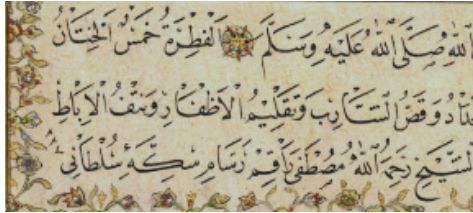 الله صَلَّى اللهُ عَلَيْهِ وَسَلَّمَ الْفِطْرَةُ خَمْسٌ الْخِتَانُ
وَقَصُّ الشَّارِبِ وَتَقْلِيمُ الْأَظْفَارِ وَنَتْفُ الْآبَاطِ
الشيخ رَحِمَهُ اللهُ مُصْطَفَى رَاقِم رَسَّام سِكَّهٔ سُلْطَانِي